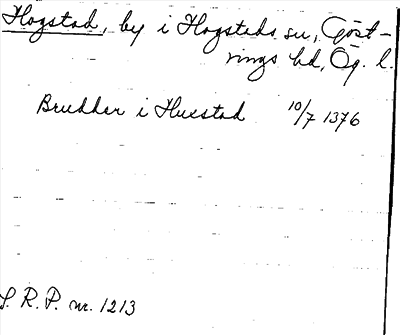 Hogstad, by i Hogstads sn, Göst-
rings hd, Ög. l.
Brudhher i Huxstad 10/7 1376
S. R. P. nr. 1213